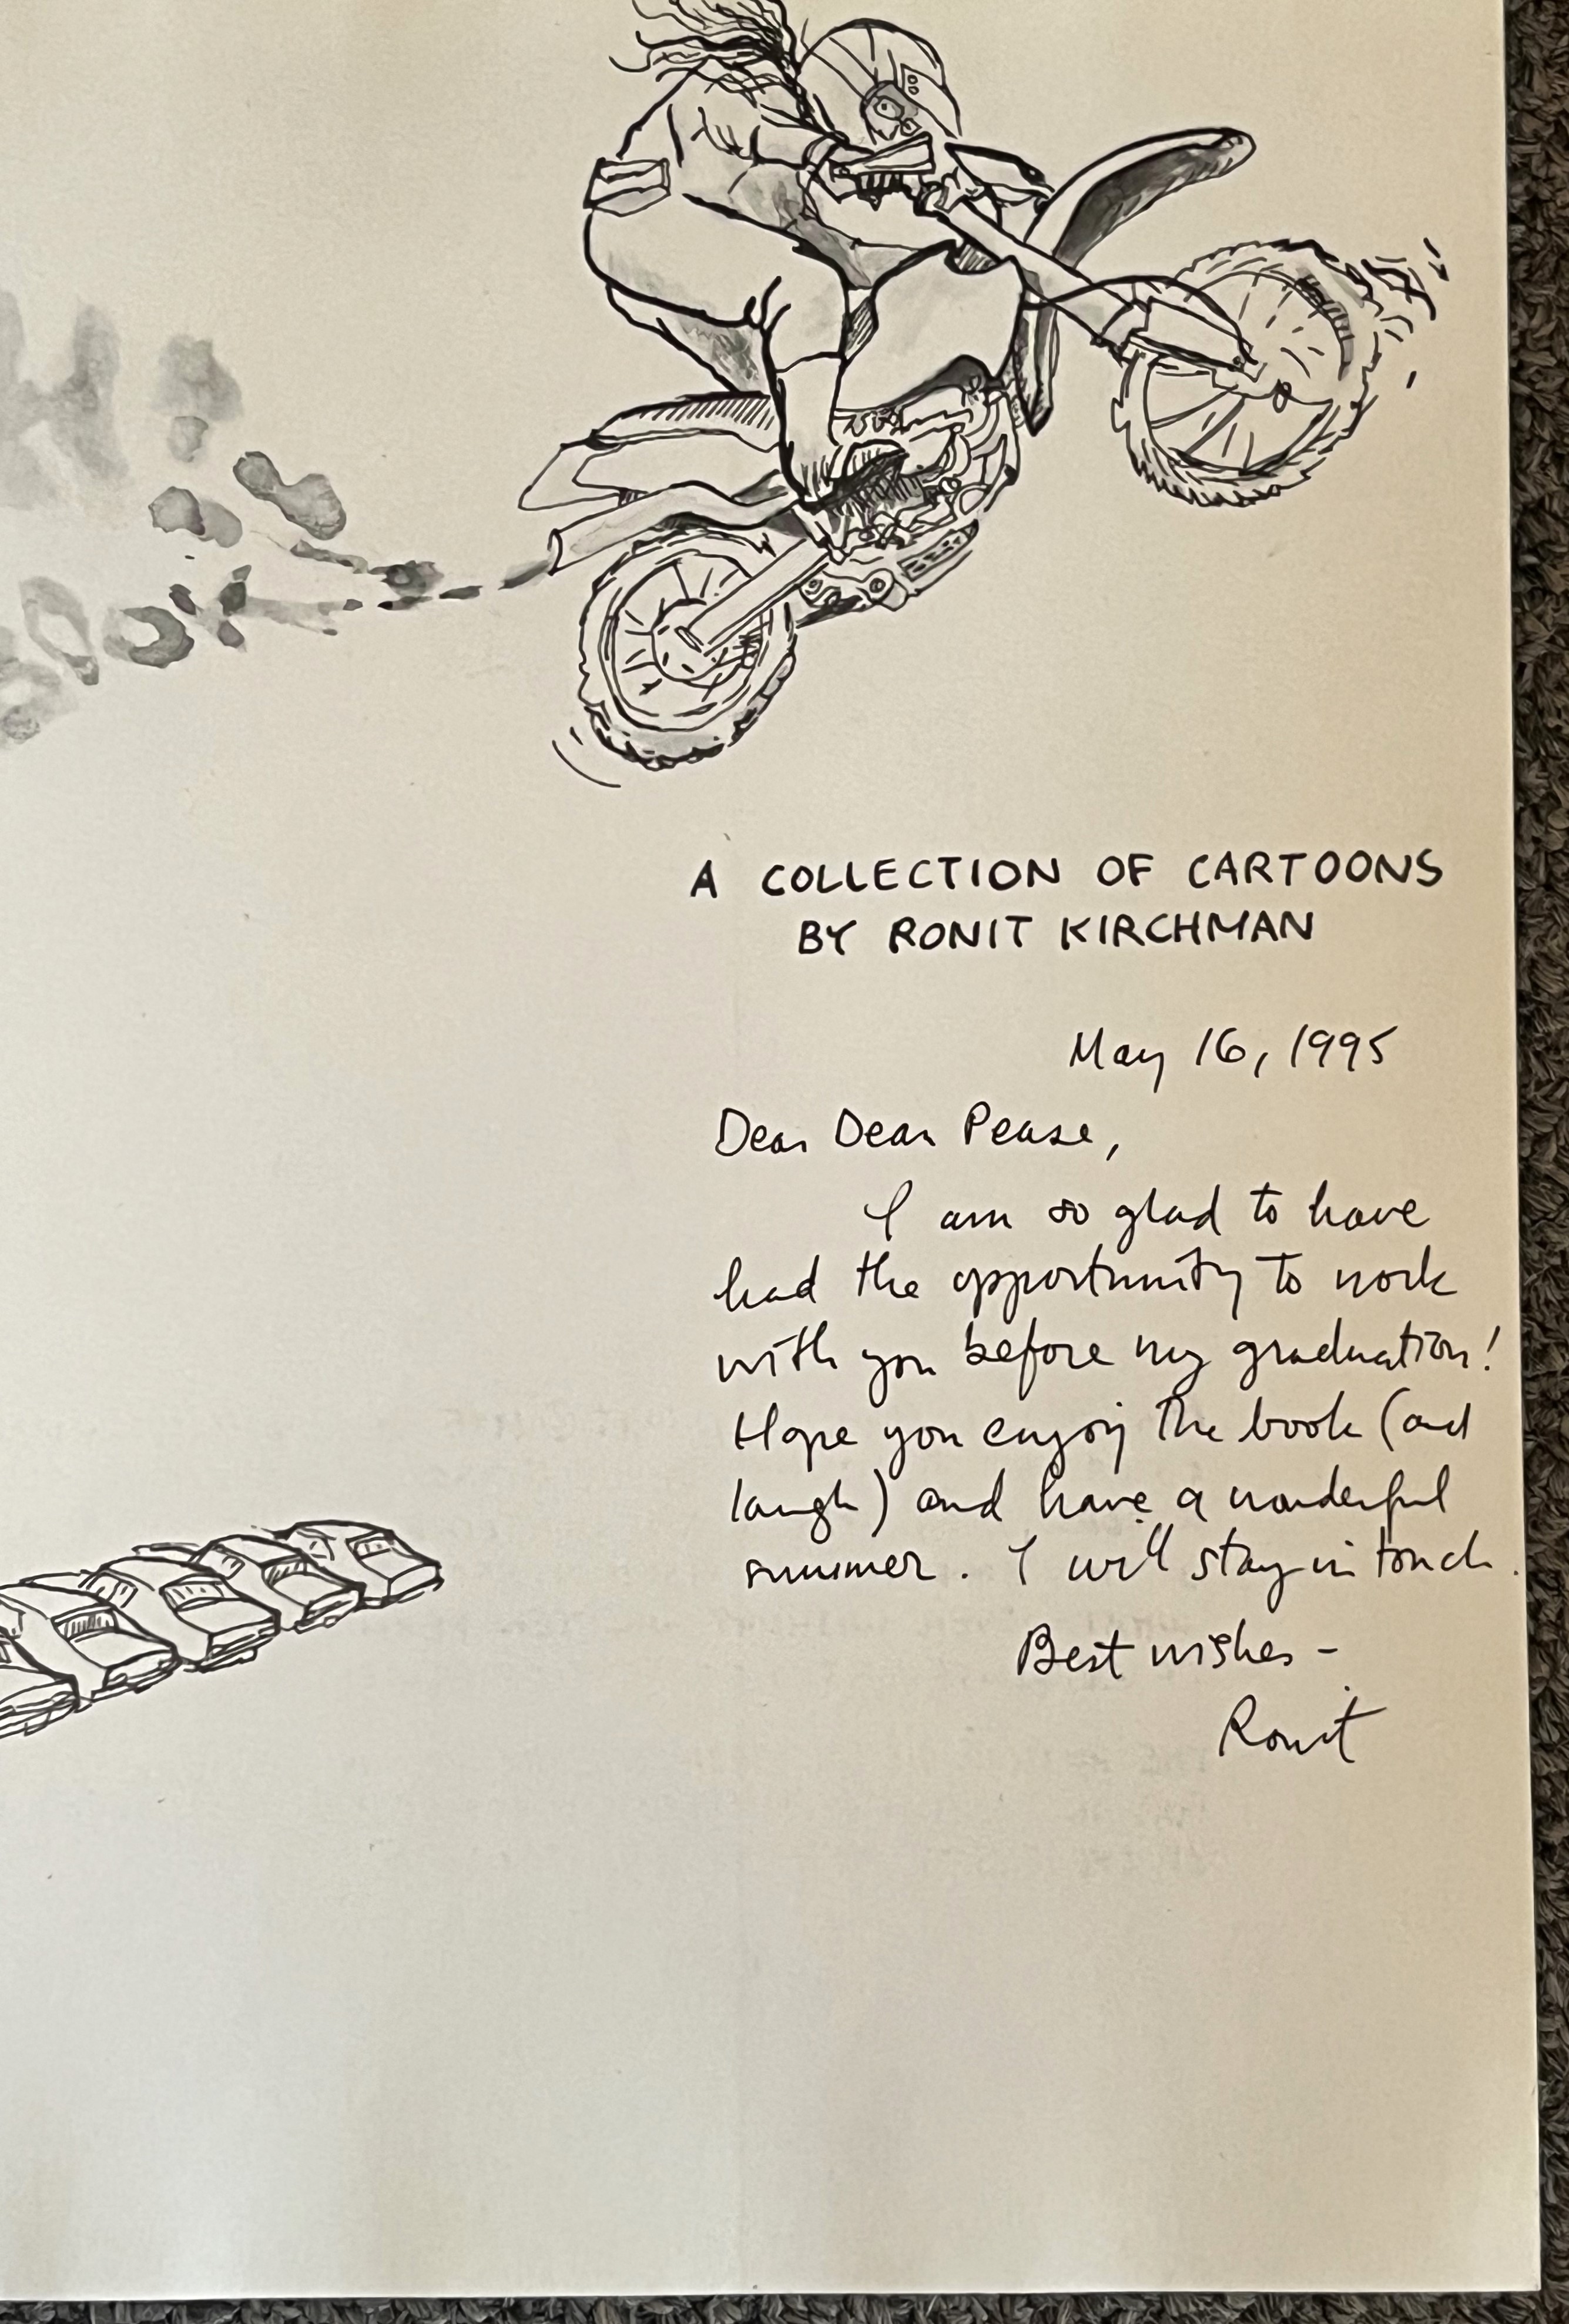 A COLLECTION OF CARTOONS
BY RONIT KIRCHMAN
May 16, 1995
Dear Dean Pease,
I am so glad to have
had the opportunity to work
with you before my graduation!
Hope you enjoy the book (and
laugh) and have a wonderful
summer. I will stay in touch.
Best wishes -
Ronit